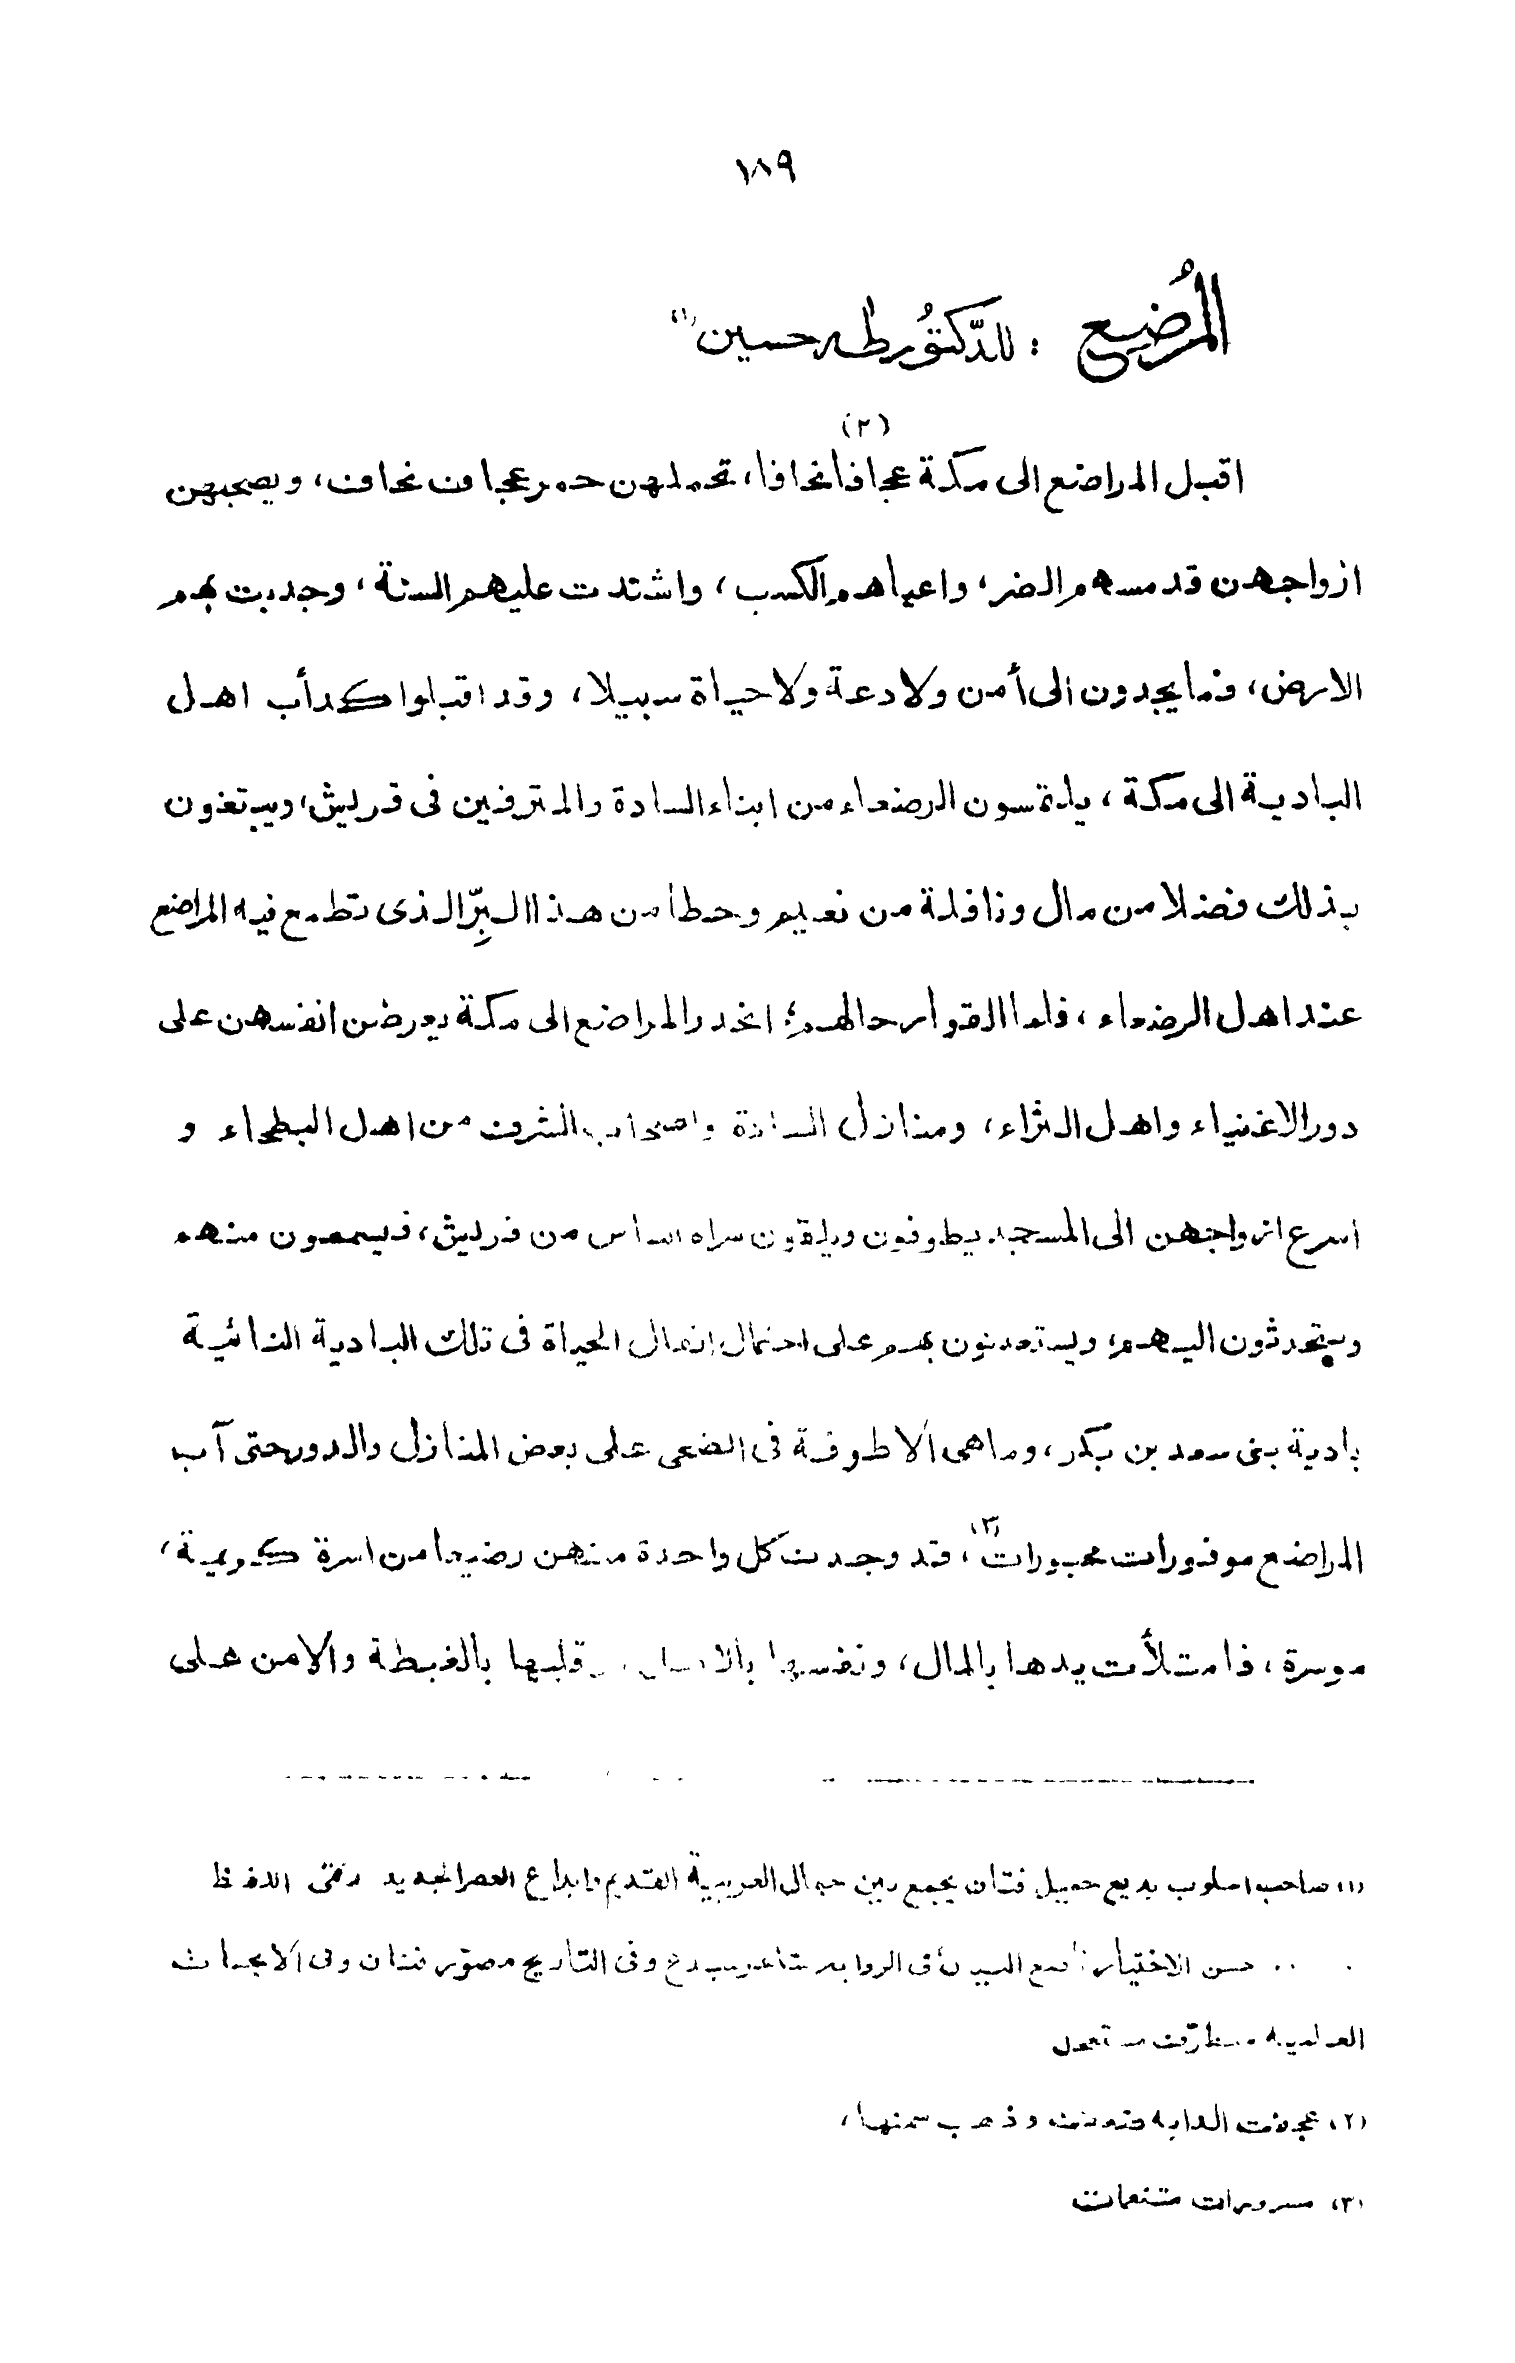 ١٨٩
المُرضيع : للدّكتُور طه حسين (١)
(٢)
اقبل المراضع الى مكة عجافا نحافا، تحملهن حمر عجاف نحاف، ويصحبهن
ازواجهن قد مسهم الضر، واعياهم الكسب، واشتدت عليهم السنة، وجدبت بهم
الارض، فما يجدون الى أمن ولا دعة ولا حياة سبيلا، وقد اقبلوا كدأب اهل
البادية الى مكة، يلتمسون الرضعاء من ابناء السادة والمترفين فى قريش، ويبتغون
بذلك فضلا من مال ونافلة من نعيم وحظا من هذا البِرّ الذى تطمع فيه المراضع
عند اهل الرضعاء، فلما القوا رحالهم؛ انحدر المراضع الى مكة يعرضن انفسهن على
دور الاغنياء واهل الثراء، ومنازل السادة واصحاب الشرف من اهل البطحاء و
اسرع ازواجهن الى المسجد يطوفون ويلقون سراه الناس من قريش، فيسمعون منهم
ويتحدثون اليهم، ويستعينون بهم على احتمال اثقال الحياة فى تلك البادية النائية
بادية بنى سعد بن بكر، وما هى ألا طوفة فى الضحى على بعض المنازل والدور حتى آب
المراضع موفورات محبورات (٣)، قد وجدت كل واحدة منهن رضيعا من اسرة كريمة،
موسرة، فامتلأت يدها بالمال، ونفسها بالامل، وقلبها بالغبطة والامن على
(١) صاحب اسلوب بديع جميل فتان يجمع بين جمال العربية القديم وابداع العصر الجديد دقتى اللفظ
حسن الاختيار البيان فى الرواية وفى التاريخ مصوّر فتان وفى الابحاث
العلمية
(٢) عجفت الدابة ضعفت وذهب سمنها،
(٣) مسرورات متنعمات